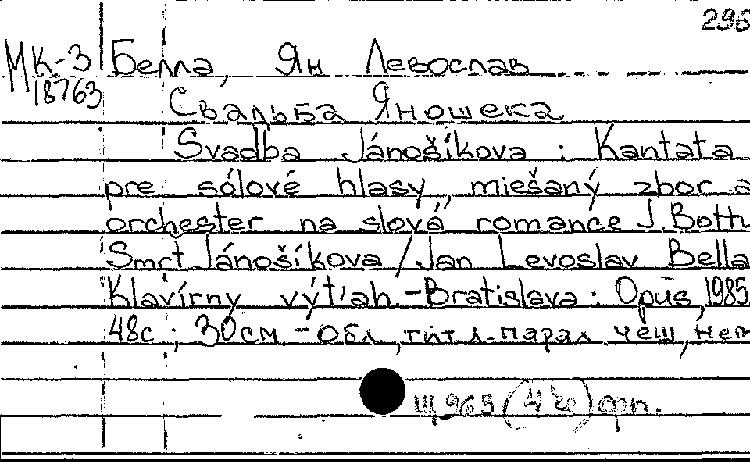 296
МК-3 Белла, Ян Левослав
18763
Свадьба Яношека
Svadba Jánošíkova : Kantata
pre sólové hlasy, miešaný zbor a
orchester na slová romance J. Both
Smrť Jánošíkova / Jan Levoslav Bella
Klavírny výťah. - Bratislava : Opus, 1985
48с ; 30см - Обл., тит. л. парал чеш, нем
Щ963 фп.